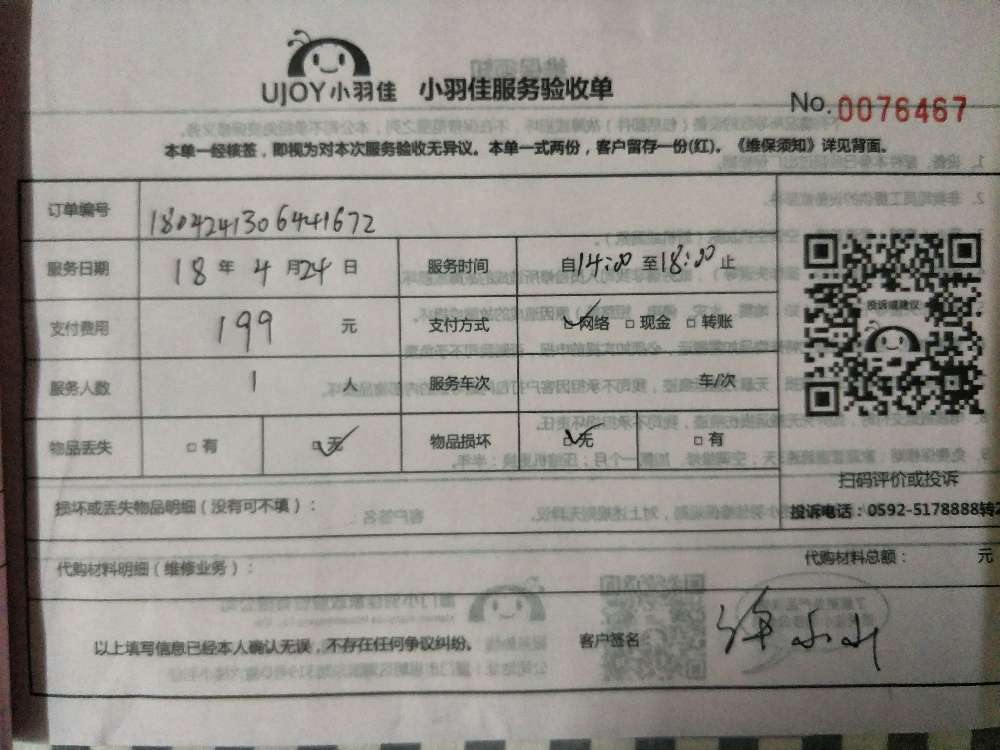 UJOY小羽佳 小羽佳服务验收单
No.0076467
本单一经核签，即视为对本次服务验收无异议。本单一式两份，客户留存一份(红)。《维保须知》详见背面。
订单编号 180424130641672
服务日期 18 年 4 月 24 日 服务时间 自14:00 至18:00 止
支付费用 199 元 支付方式 网络 现金 转账
服务人数 1 人 服务车次 车/次
物品丢失 有 无 物品损坏 无 有
投诉或建议
扫码评价或投诉
投诉电话：0592-5178888转2
损坏或丢失物品明细（没有可不填）：
代购材料明细（维修业务）： 代购材料总额： 元
以上填写信息已经本人确认无误，不存在任何争议纠纷。 客户签名：